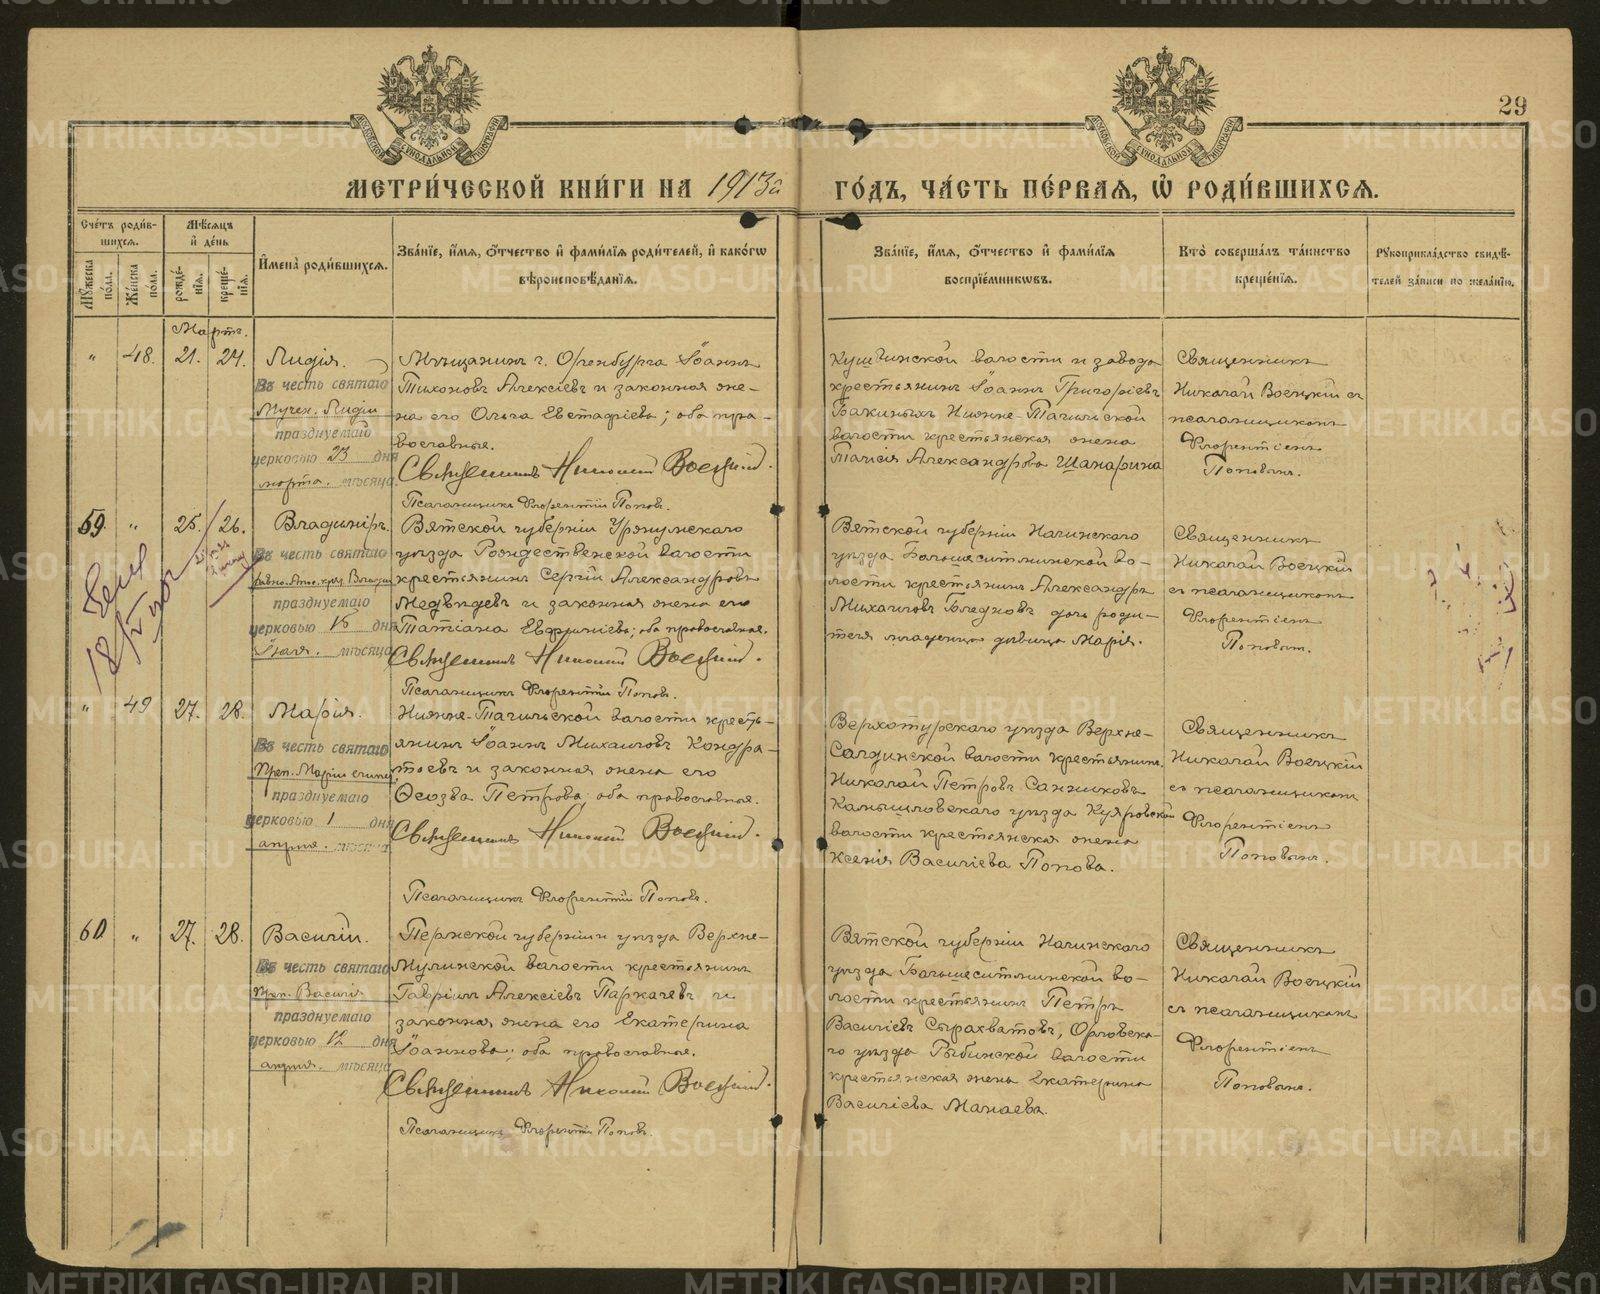 29
МЕТРИ́ЧЕСКОЙ КНИ́ГИ НА 1913й ГО́ДЪ, ЧА́СТЬ ПЕ́РВАЯ, Ѽ РОДИ́ВШИХСЯ.
Сче́тъ роди́в-
шихся.
Мꙋ́жеска по́ла.
Же́нска по́ла.
Мѣ́сяцъ
и҆ де́нь
рожде́-
нїя.
креще́-
нїя.
И҆мена̀ роди́вшихся.
Зва́нїе, и҆́мя, ѻ҆́тчество и҆ фами́лїя роди́телей, и҆ како́гѡ
вѣ́роисповѣ́данїя.
Зва́нїе, и҆́мя, ѻ҆́тчество и҆ фами́лїя
воспрїе́мниковъ.
Кто̀ соверша́лъ та́инство
креще́нїя.
Рꙋкоприкла́дство свидѣ́-
телей за́писи по жела́нїю.
Мартъ.
" 48. 21. 24. Лидія.
Въ честь святаго
Мучен. Лидіи
празднуемаго
церковью 23 дня
марта. мѣсяца
Мѣщанинъ г. Оренбурга Іоаннъ
Тихоновъ Алексіевъ и законная же-
на его Ольга Евстафіева; оба пра-
вославные.
Священникъ Николай Воецкій.
Псаломщикъ Флорентій Поповъ.
Кушвинской волости и завода
крестьянинъ Іоаннъ Григоріевъ
Бакиныхъ Нижне-Тагильской
волости крестьянская жена
Таисія Александрова Шапарина
Священникъ
Николай Воецкій съ
псаломщикомъ
Флорентіемъ
Поповымъ.
59 " 25. 26. Владиміръ.
Въ честь святаго
равно-Апос. кня. Владим
празднуемаго
церковью 15 дня
Іюля. мѣсяца
Вятской губерніи Уржумскаго
уѣзда Рождественской волости
крестьянинъ Сергій Александровъ
Медвѣдевъ и законная жена его
Татіана Евфиміева; оба православные.
Священникъ Николай Воецкій.
Псаломщикъ Флорентій Поповъ.
Вятской губерніи Нолинскаго
уѣзда Большеситминской во-
лости крестьянинъ Александръ
Михаиловъ Бледновъ дочь роди-
теля младенца дѣвица Марія.
Священникъ
Николай Воецкій
съ псаломщикомъ
Флорентіемъ
Поповым.
" 49 27. 28. Марія.
Въ честь святаго
Преп. Маріи египет.
празднуемаго
церковью 1 дня
апрѣля. мѣсяца
Нижне-Тагильской волости кресть-
янинъ Іоаннъ Михаиловъ Кондра-
тьевъ и законная жена его
Ѳеозва Петрова; оба православные.
Священникъ Николай Воецкій.
Псаломщикъ Флорентій Поповъ.
Верхотурскаго уѣзда Верхне-
Салдинской волости крестьянинъ
Николай Петровъ Санниковъ
Камышловскаго уѣзда Куяровской
волости крестьянская жена
Ксенія Василіева Попова.
Священникъ
Николай Воецкій
съ псаломщикомъ
Флорентіемъ
Поповымъ.
60 " 27. 28. Василій.
Въ честь святаго
Преп. Василія
празднуемаго
церковью 12 дня
апрѣля. мѣсяца
Пермской губерніи и уѣзда Верхне-
Мулинской волости крестьянинъ
Гавріилъ Алексіевъ Паркачевъ и
законная жена его Екатерина
Іоаннова; оба православные.
Священникъ Николай Воецкій.
Псаломщикъ Флорентій Поповъ.
Вятской губерніи Нолинскаго
уѣзда Большеситминской во-
лости крестьянинъ Петръ
Василіевъ Сырахватовъ, Орловска-
го уѣзда Рыбинской волости
крестьянская жена Екатерина
Василіева Манаева.
Священникъ
Николай Воецкій
съ псаломщикомъ
Флорентіемъ
Поповымъ.
METRIKI.GASO-URAL.RU